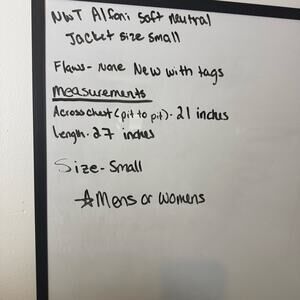 NWT Alfani soft neutral
Jacket size small
Flaws - none New with tags
Measurements
Across chest (pit to pit) - 21 inches
Length - 27 inches
Size - Small
☆ Mens or womens